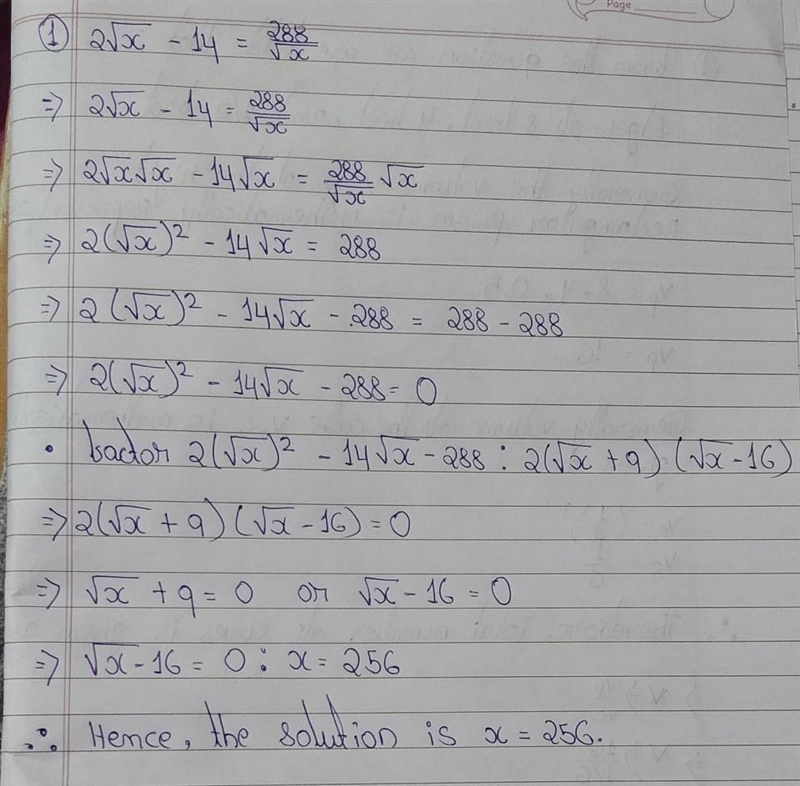 Page
① 2√x - 14 = 288/√x
⇒ 2√x - 14 = 288/√x
⇒ 2√x√x - 14√x = 288/√x √x
⇒ 2(√x)² - 14√x = 288
⇒ 2(√x)² - 14√x - 288 = 288 - 288
⇒ 2(√x)² - 14√x - 288 = 0
• factor 2(√x)² - 14√x - 288 : 2(√x + 9) (√x - 16)
⇒ 2(√x + 9) (√x - 16) = 0
⇒ √x + 9 = 0 or √x - 16 = 0
⇒ √x - 16 = 0 : x = 256
∴ Hence, the solution is x = 256.